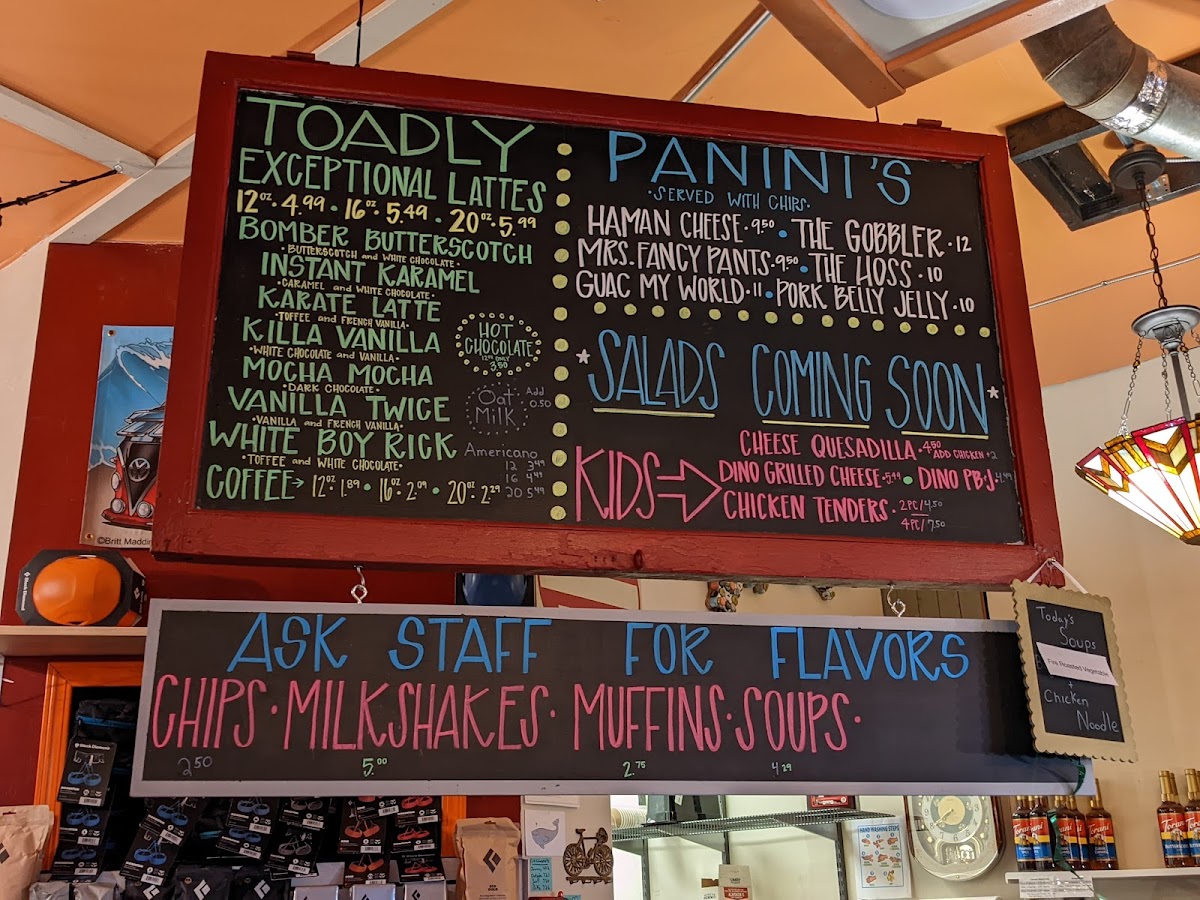 TOADLY
EXCEPTIONAL LATTES
12oz. 4.99 • 16oz. 5.49 • 20oz. 5.99
BOMBER BUTTERSCOTCH
•BUTTERSCOTCH and WHITE CHOCOLATE•
INSTANT KARAMEL
•CARAMEL and WHITE CHOCOLATE•
KARATE LATTE
•TOFFEE and FRENCH VANILLA•
KILLA VANILLA
•WHITE CHOCOLATE and VANILLA•
MOCHA MOCHA
•DARK CHOCOLATE•
VANILLA TWICE
•VANILLA and FRENCH VANILLA•
WHITE BOY RICK
•TOFFEE and WHITE CHOCOLATE•
COFFEE→ 12oz. 1.89 • 16oz. 2.09 • 20oz. 2.29
HOT
CHOCOLATE
12oz ONLY
3.50
Oat
Milk
Add
0.50
Americano
12 3.49
16 4.49
20 5.49
PANINI'S
•SERVED WITH CHIPS•
HAMAN CHEESE•9.50 • THE GOBBLER•12
MRS. FANCY PANTS•9.50 • THE HOSS•10
GUAC MY WORLD•11 • PORK BELLY JELLY•10
SALADS COMING SOON
KIDS→
CHEESE QUESADILLA•4.50
ADD CHICKEN +2
DINO GRILLED CHEESE•5.49 • DINO PB•J•4.99
CHICKEN TENDERS•
2PC/4.50
4PC/7.50
ASK STAFF FOR FLAVORS
CHIPS•MILKSHAKES•MUFFINS•SOUPS•
2.50 5.00 2.75 4.29
Today's
Soups
Fire Roasted Vegetable
+
Chicken
Noodle
©Britt Maddi
Black Diamond
HAND WASHING STEPS
Torani
Torani
Torani
Torani